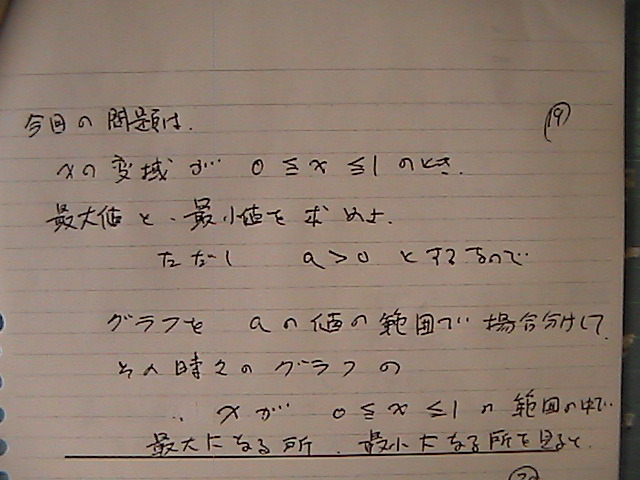 今回の問題は、 ⑲
xの変域が 0≦x≦1のとき、
最大値と、最小値を求めよ。
ただし a>0 とするなので
グラフを aの値の範囲で場合分けして
その時々のグラフの
xが 0≦x≦1の範囲の中で
最大になる所、最小になる所を見ると、